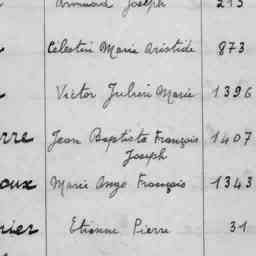 Armand Joseph 213
Célestin Marie Aristide 873
Victor Julien Marie 1396
rre Jean Baptiste François 1407
Joseph
oux Marie Ange François 1343
nier Etienne Pierre 31